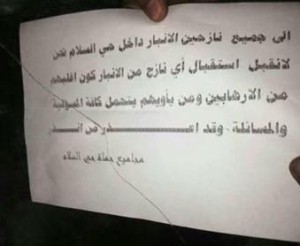 الى جميع نازحين الانبار داخل حي السلام نحن
لانقبل استقبال أي نازح من الانبار كون اغلبهم
من الارهابين ومن يأويهم يتحمل كافة المسؤلية
والمسائلة وقد اعـــــــــذر من انـــــذر
مجاميع حملة حي السلام